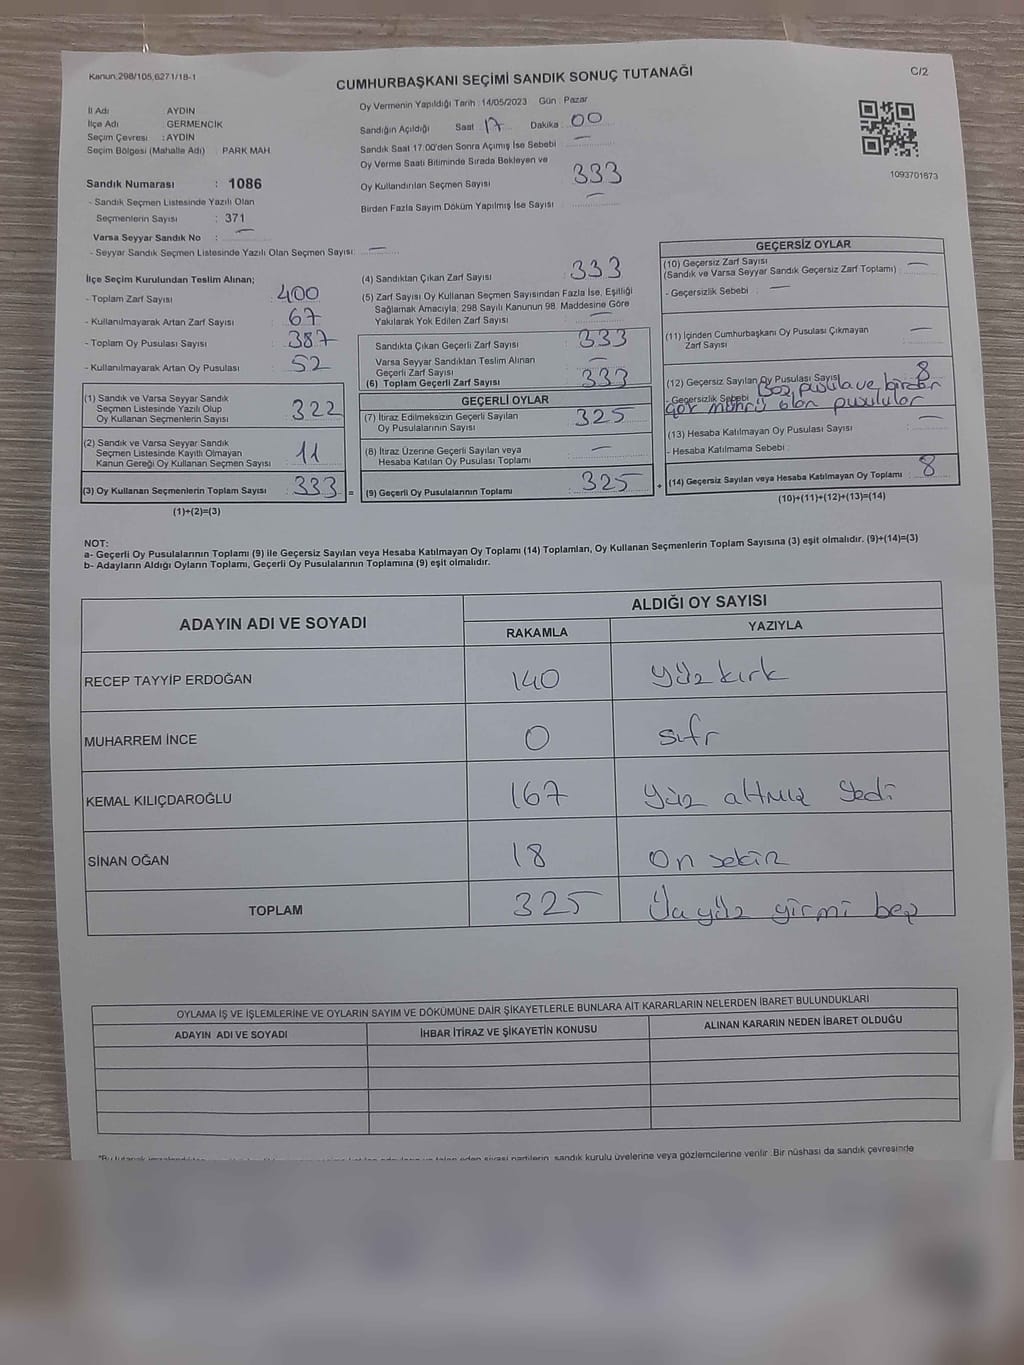 Kanun,298/105,6271/18-1
C/2
CUMHURBAŞKANI SEÇİMİ SANDIK SONUÇ TUTANAĞI
İl Adı AYDIN
İlçe Adı GERMENCİK
Seçim Çevresi : AYDIN
Seçim Bölgesi (Mahalle Adı) : PARK MAH
Sandık Numarası : 1086
- Sandık Seçmen Listesinde Yazılı Olan
Seçmenlerin Sayısı : 371
Varsa Seyyar Sandık No : —
- Seyyar Sandık Seçmen Listesinde Yazılı Olan Seçmen Sayısı: —
Oy Vermenin Yapıldığı Tarih : 14/05/2023 Gün : Pazar
Sandığın Açıldığı Saat : 17 Dakika : 00
Sandık Saat 17.00'den Sonra Açımış İse Sebebi : —
Oy Verme Saati Bitiminde Sırada Bekleyen ve
Oy Kullandırılan Seçmen Sayısı : 333
Birden Fazla Sayım Döküm Yapılmış İse Sayısı : —
1093701673
İlçe Seçim Kurulundan Teslim Alınan;
- Toplam Zarf Sayısı : 400
- Kullanılmayarak Artan Zarf Sayısı : 67
- Toplam Oy Pusulası Sayısı : 387
- Kullanılmayarak Artan Oy Pusulası : 52
(1) Sandık ve Varsa Seyyar Sandık
Seçmen Listesinde Yazılı Olup
Oy Kullanan Seçmenlerin Sayısı : 322
(2) Sandık ve Varsa Seyyar Sandık
Seçmen Listesinde Kayıtlı Olmayan
Kanun Gereği Oy Kullanan Seçmen Sayısı : 11
(3) Oy Kullanan Seçmenlerin Toplam Sayısı : 333 =
(1)+(2)=(3)
(4) Sandıktan Çıkan Zarf Sayısı : 333
(5) Zarf Sayısı Oy Kullanan Seçmen Sayısından Fazla İse, Eşitliği
Sağlamak Amacıyla; 298 Sayılı Kanunun 98. Maddesine Göre
Yakılarak Yok Edilen Zarf Sayısı : —
Sandıkta Çıkan Geçerli Zarf Sayısı : 333
Varsa Seyyar Sandıktan Teslim Alınan
Geçerli Zarf Sayısı : —
(6) Toplam Geçerli Zarf Sayısı : 333
GEÇERLİ OYLAR
(7) İtiraz Edilmeksizin Geçerli Sayılan
Oy Pusulalarının Sayısı : 325
(8) İtiraz Üzerine Geçerli Sayılan veya
Hesaba Katılan Oy Pusulası Toplamı : —
(9) Geçerli Oy Pusulalarının Toplamı : 325 +
GEÇERSİZ OYLAR
(10) Geçersiz Zarf Sayısı
(Sandık ve Varsa Seyyar Sandık Geçersiz Zarf Toplamı) : —
- Geçersizlik Sebebi : —
(11) İçinden Cumhurbaşkanı Oy Pusulası Çıkmayan
Zarf Sayısı : —
(12) Geçersiz Sayılan Oy Pusulası Sayısı : 8
- Geçersizlik Sebebi : Boş pusula ve birden
çok mührü olan pusulalar
(13) Hesaba Katılmayan Oy Pusulası Sayısı : —
- Hesaba Katılmama Sebebi :
(14) Geçersiz Sayılan veya Hesaba Katılmayan Oy Toplamı : 8
(10)+(11)+(12)+(13)=(14)
NOT:
a- Geçerli Oy Pusulalarının Toplamı (9) ile Geçersiz Sayılan veya Hesaba Katılmayan Oy Toplamı (14) Toplamları, Oy Kullanan Seçmenlerin Toplam Sayısına (3) eşit olmalıdır. (9)+(14)=(3)
b- Adayların Aldığı Oyların Toplamı, Geçerli Oy Pusulalarının Toplamına (9) eşit olmalıdır.
ADAYIN ADI VE SOYADI ALDIĞI OY SAYISI
RAKAMLA YAZIYLA
RECEP TAYYİP ERDOĞAN 140 Yüz kırk
MUHARREM İNCE 0 sıfır
KEMAL KILIÇDAROĞLU 167 Yüz altmış yedi
SİNAN OĞAN 18 On sekiz
TOPLAM 325 Üç yüz yirmi beş
OYLAMA İŞ VE İŞLEMLERİNE VE OYLARIN SAYIM VE DÖKÜMÜNE DAİR ŞİKAYETLERLE BUNLARA AİT KARARLARIN NELERDEN İBARET BULUNDUKLARI
ADAYIN ADI VE SOYADI İHBAR İTİRAZ VE ŞİKAYETİN KONUSU ALINAN KARARIN NEDEN İBARET OLDUĞU
siyasi partilerin, sandık kurulu üyelerine veya gözlemcilerine verilir. Bir nüshası da sandık çevresinde